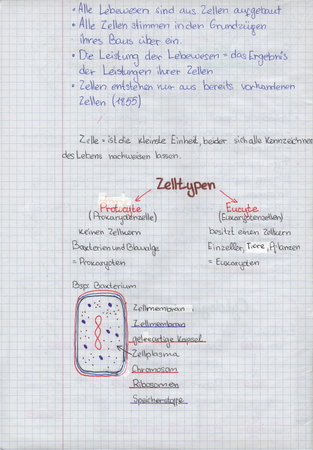 • Alle Lebewesen sind aus Zellen aufgebaut
• Alle Zellen stimmen in den Grundzügen
ihres Baus über ein.
• Die Leistung der Lebewesen = das Ergebnis
der Leistungen ihrer Zellen
• Zellen entstehen nur aus bereits vorhandenen
Zellen (1855)
Zelle = ist die kleinste Einheit, bei der sich alle Kennzeichnen
des Lebens nachweisen lassen.
Zelltypen
Protocyte
(Prokaryotenzelle)
keinen Zellkern
Bakterien und Blaualge
= Prokaryoten
Eucyte
(Eukaryotenzellen)
besitzt einen Zellkern
Einzeller, Tiere, Pflanzen
= Eucaryoten
Bsp: Bakterium
Zellmembran
Zellmembran
geleeartige Kapsel
Zellplasma
Chromosom
Ribosomen
Speicherstoffe